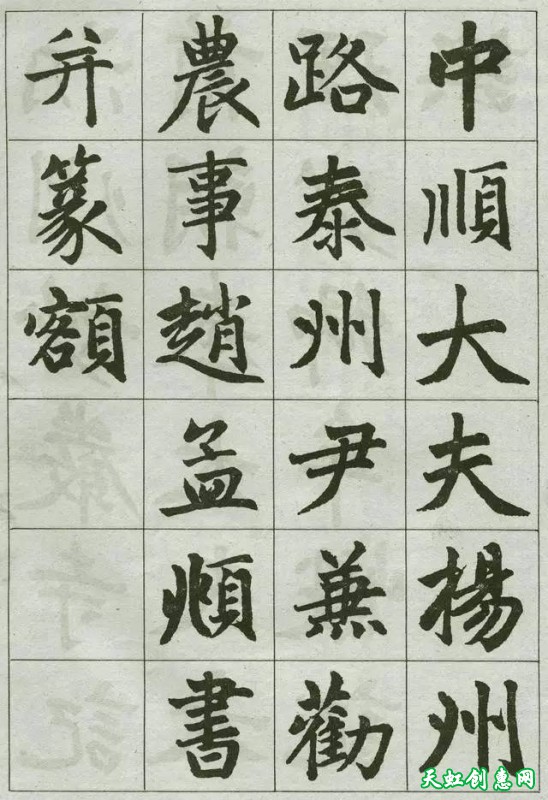 中順大夫楊州
路泰州尹兼勸
農事趙孟頫書
并篆額
天虹创惠网